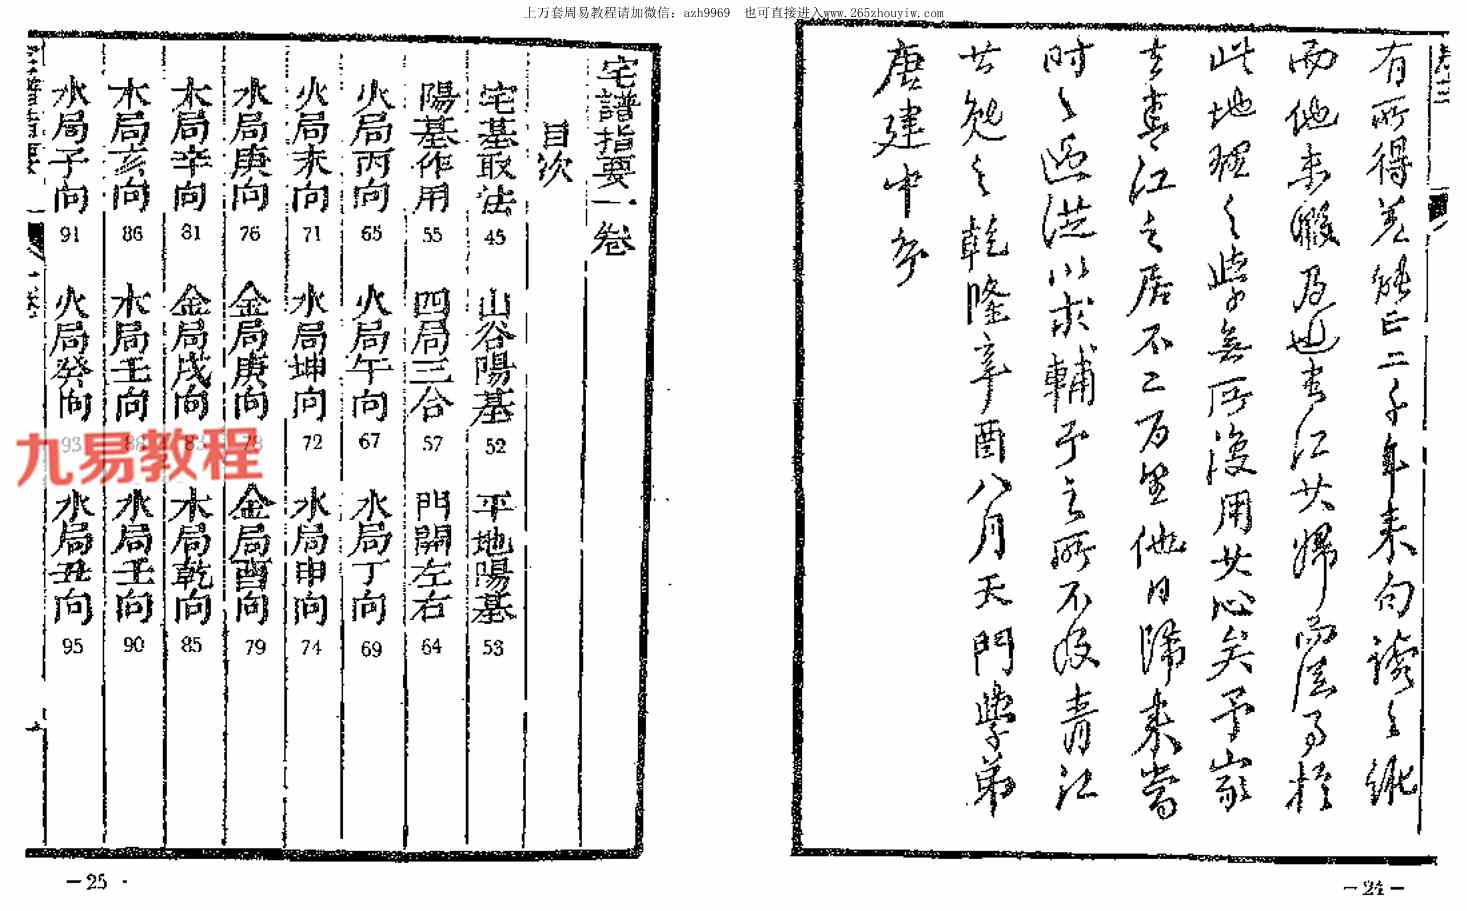 上万套周易教程请加微信：azh9969　也可直接进入www.265zhouyiw.com
有所得差能亡二千年来句读之
而他未暇及也青江其归而
此地理之学无所复用其心矣予家
去青江之居不二百里他日归来当
时之過
以求輔予之所不及青江
其勉之乾隆辛酉八月天門學弟
唐建中序
－24－
宅譜指要一卷
目次
宅基取法 45 山谷陽基 52 平地陽基 53
陽基作用 55 四局三合 57 門開左右 64
火局丙向 65 火局午向 67 水局丁向 69
火局未向 71 水局坤向 72 水局申向 74
水局庚向 76 金局庚向 78 金局酉向 79
木局辛向 81 金局戌向 83 木局乾向 85
木局亥向 86 木局壬向 88 水局壬向 90
水局子向 91 火局癸向 93 水局丑向 95
九易教程
－25